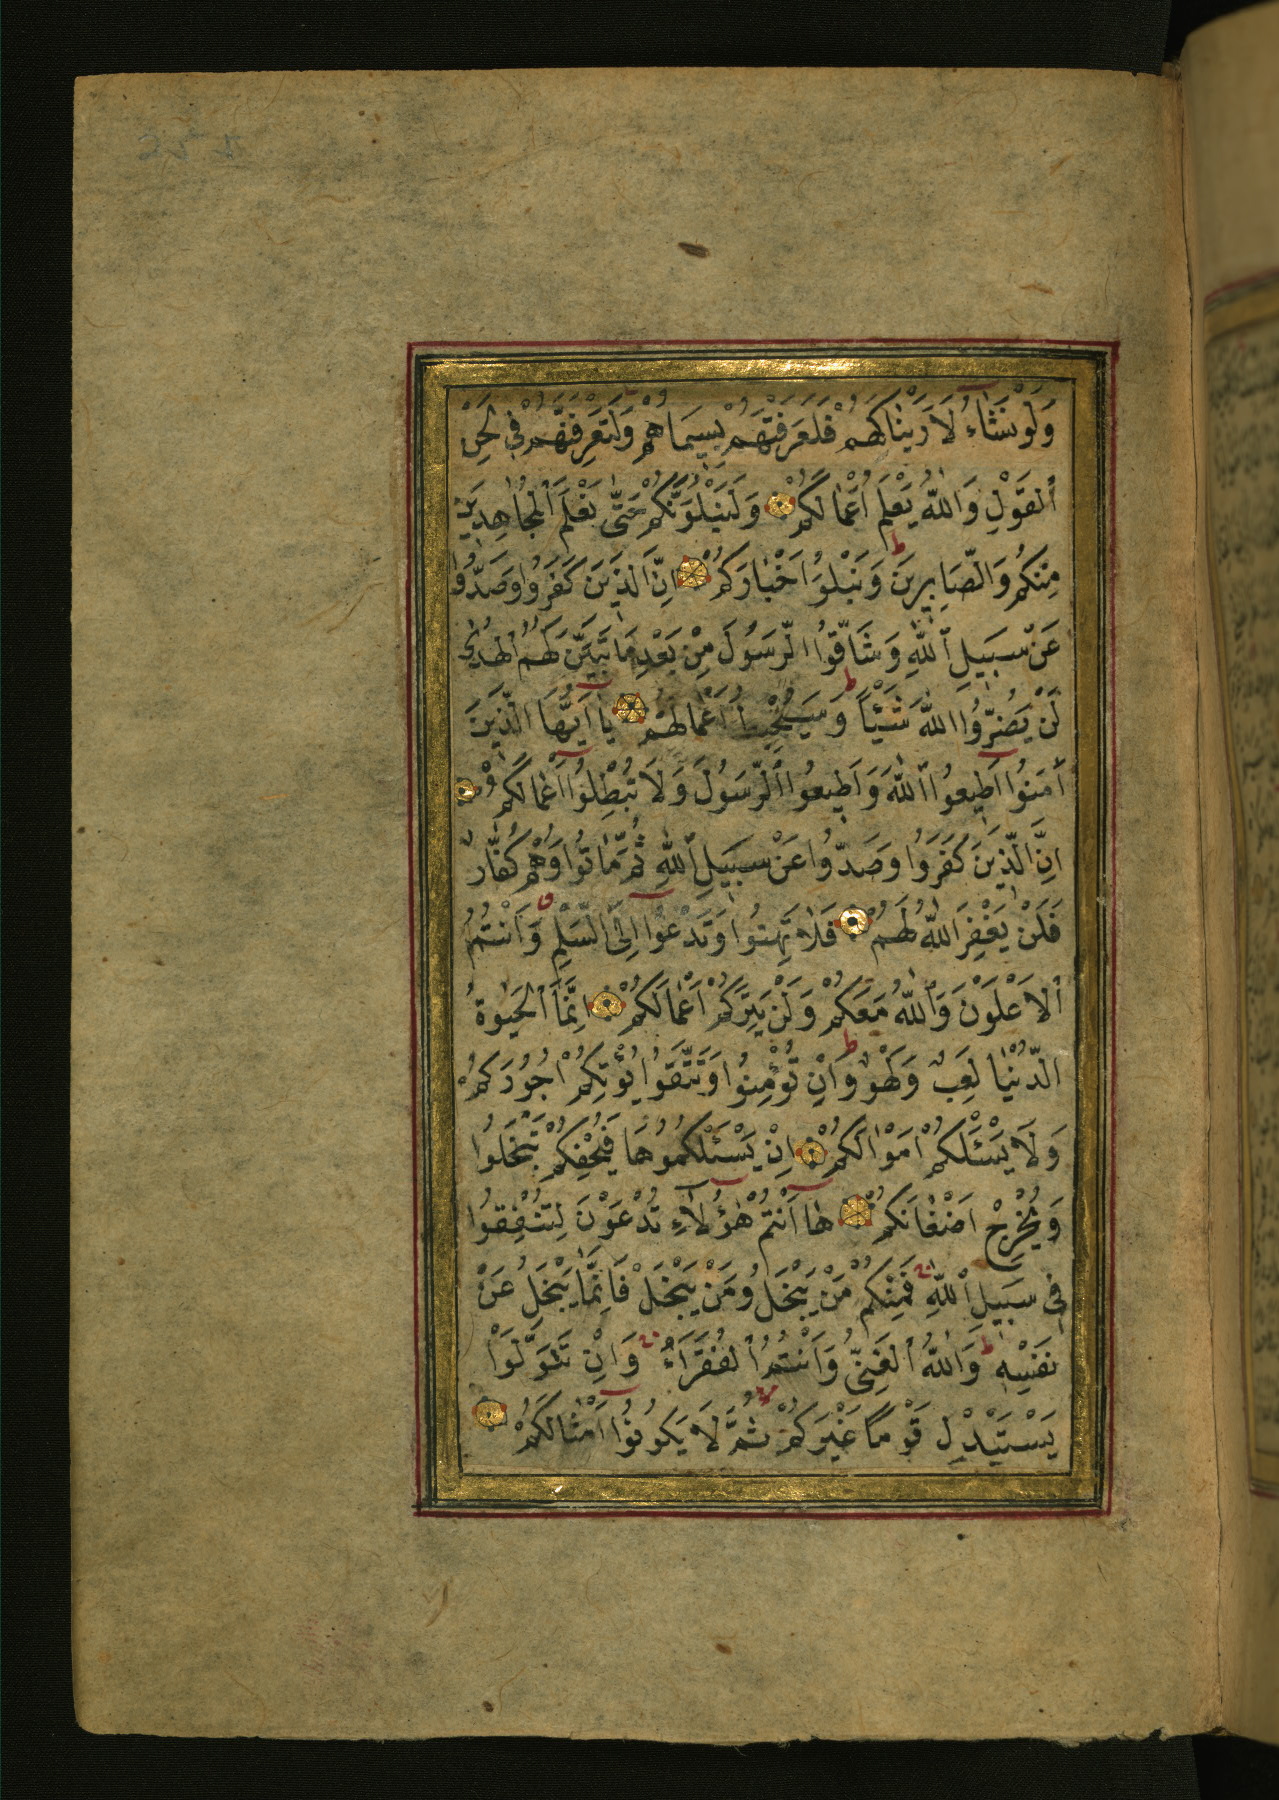 وَلَوْ نَشَاءُ لَأَرَيْنَاكَهُمْ فَلَعَرَفْتَهُمْ بِسِيمَاهُمْ وَلَتَعْرِفَنَّهُمْ فِي لَحْنِ
ٱلْقَوْلِ وَاللّٰهُ يَعْلَمُ أَعْمَالَكُمْ وَلَنَبْلُوَنَّكُمْ حَتَّى نَعْلَمَ ٱلْمُجَاهِدِينَ
مِنْكُمْ وَالصَّابِرِينَ وَنَبْلُوَا اَخْبَارَكُمْ اِنَّ الَّذِينَ كَفَرُوا وَصَدُّوا
عَنْ سَبِيلِ ٱللّٰهِ وَشَاقُّوا الرَّسُولَ مِنْ بَعْدِ مَا تَبَيَّنَ لَهُمُ ٱلْهُدٰى
لَنْ يَضُرُّوا اللّٰهَ شَيْئًا وَسَيُحْبِطُ اَعْمَالَهُمْ يَا اَيُّهَا الَّذِينَ
اٰمَنُوا اَطِيعُوا ٱللّٰهَ وَاَطِيعُوا ٱلرَّسُولَ وَلَا تُبْطِلُوا اَعْمَالَكُمْ
اِنَّ الَّذِينَ كَفَرُوا وَصَدُّوا عَنْ سَبِيلِ ٱللّٰهِ ثُمَّ مَاتُوا وَهُمْ كُفَّارٌ
فَلَنْ يَغْفِرَ اللّٰهُ لَهُمْ فَلَا تَهِنُوا وَتَدْعُوا اِلَى السَّلْمِ وَاَنْتُمُ
ٱلْاَعْلَوْنَ وَٱللّٰهُ مَعَكُمْ وَلَنْ يَتِرَكُمْ اَعْمَالَكُمْ اِنَّمَا ٱلْحَيٰوةُ
الدُّنْيَا لَعِبٌ وَلَهْوٌ وَاِنْ تُؤْمِنُوا وَتَتَّقُوا يُؤْتِكُمْ اُجُورَكُمْ
وَلَا يَسْئَلْكُمْ اَمْوَالَكُمْ اِنْ يَسْئَلْكُمُوهَا فَيُحْفِكُمْ تَبْخَلُوا
وَيُخْرِجْ اَضْغَانَكُمْ هَا اَنْتُمْ هٰؤُلَاءِ تُدْعَوْنَ لِتُنْفِقُوا
فِي سَبِيلِ ٱللّٰهِ فَمِنْكُمْ مَنْ يَبْخَلُ وَمَنْ يَبْخَلْ فَاِنَّمَا يَبْخَلُ عَنْ
نَفْسِهِ وَاللّٰهُ ٱلْغَنِيُّ وَاَنْتُمُ ٱلْفُقَرَاءُ وَاِنْ تَتَوَلَّوْا
يَسْتَبْدِلْ قَوْمًا غَيْرَكُمْ ثُمَّ لَا يَكُونُوا اَمْثَالَكُمْ